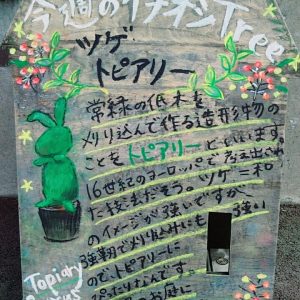 今週のイチオシTree
ツゲ
トピアリー
常緑の低木を
刈り込んで作る造形物の
ことをトピアリーといいます。
16世紀のヨーロッパで
た技法だそう。ツゲ＝和
のイメージが強いですが
強靭で刈り込みにも強い
ので、トピアリーに
ぴったりなんです。
お庭に
Topiary